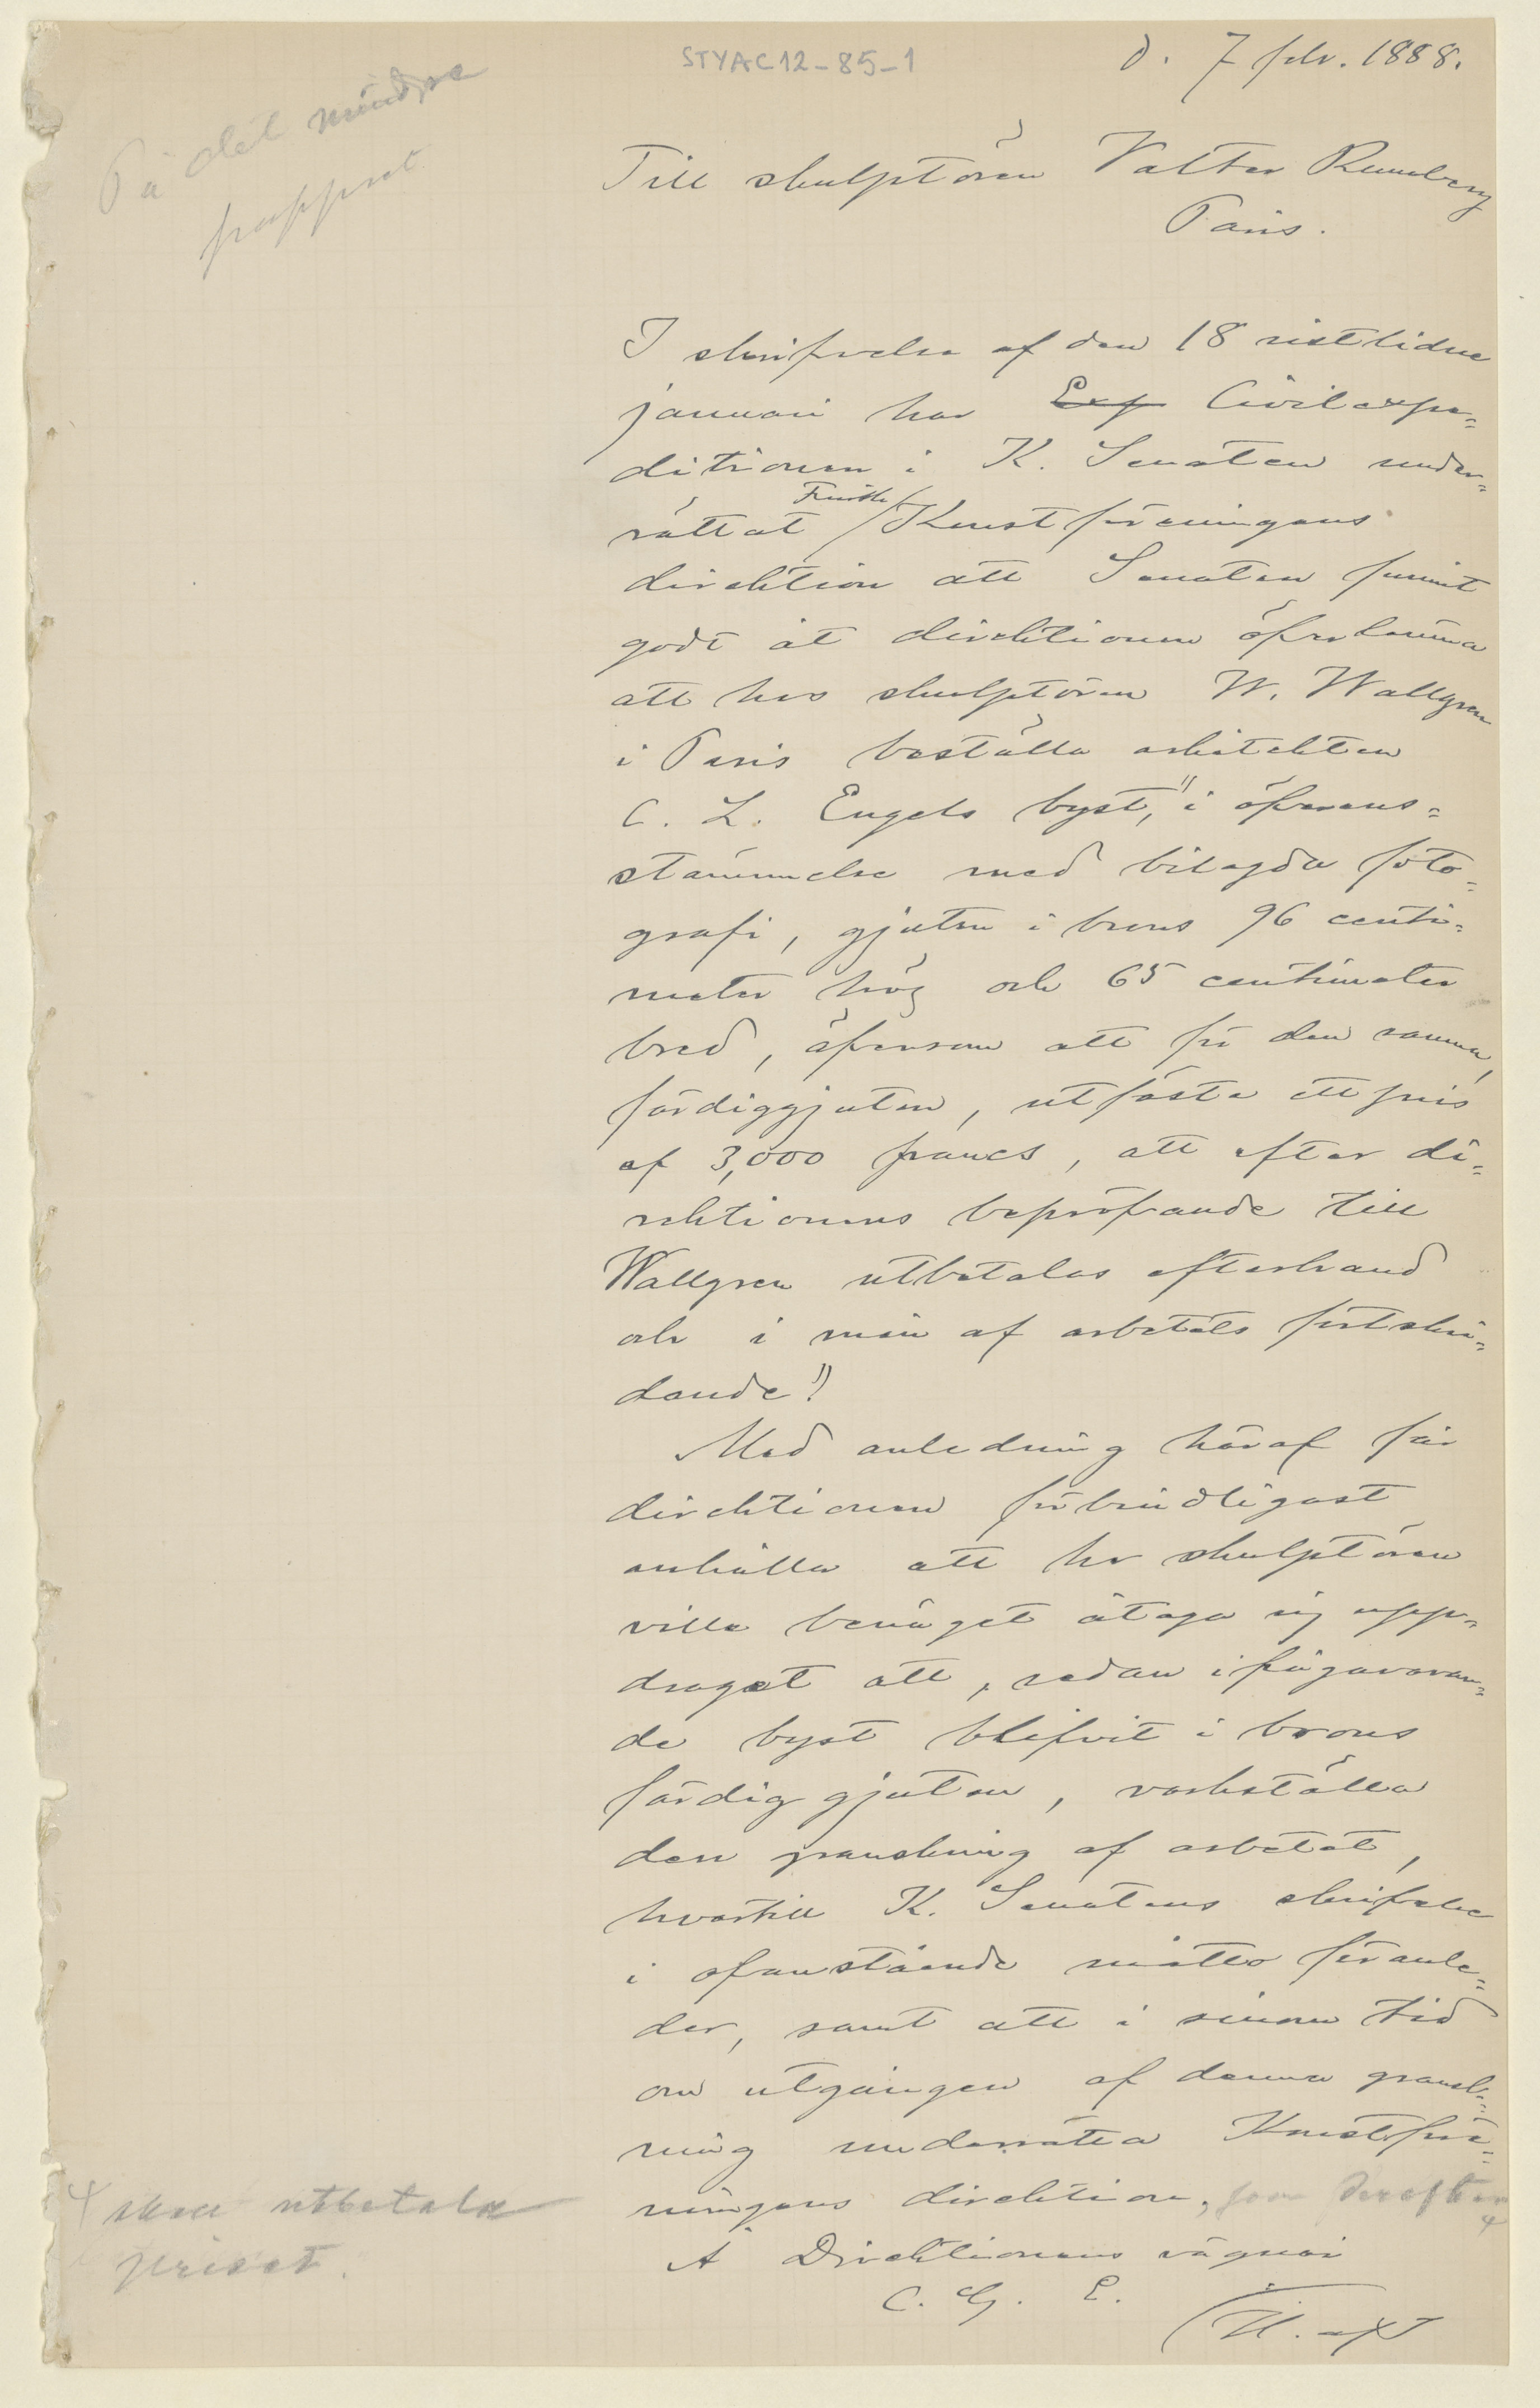 STYAC12-85-1
d. 7 febr. 1888.
På det mindre
pappret
Till skulptören Valter Runeberg
Paris.
I skrifvelse af den 18 sistlidne
januari har Exp Civilexpe=
ditionen i K. Senaten under=
rättat Finska Konstföreningens
direktion att Senaten funnit
godt åt direktionen öfverlemna
att hos skulptören W. Wallgren
i Paris beställa arkitekten
C. L. Engels byst, "i öfverens=
stämmelse med bilagda foto=
grafi, gjuten i brons 96 centi=
meter hög och 65 centimeter
bred, äfvensom att för den samma,
färdiggjuten, utfästa ett pris
af 3,000 francs, att efter di=
rektionens bepröfvande till
Wallgren utbetalas efterhand
och i mån af arbetets fortskri=
dande"
Med anledning häraf får
direktionen förbindligast
anhålla att hr skulptören
ville benäget åtaga sig upp=
draget att, sedan ifrågavaran=
de byst blifvit i brons
färdig gjuten, verkställa
den granskning af arbetet,
hvartill K. Senatens skrifvelse
i ofvanstående måtto föranle=
der, samt att i sinom tid
om utgången af denna gransk=
ning underrätta Konstföre=
ningens direktion, som derefter
skall utbetala
priset.
Å Direktionens vägnar
C. G. E.